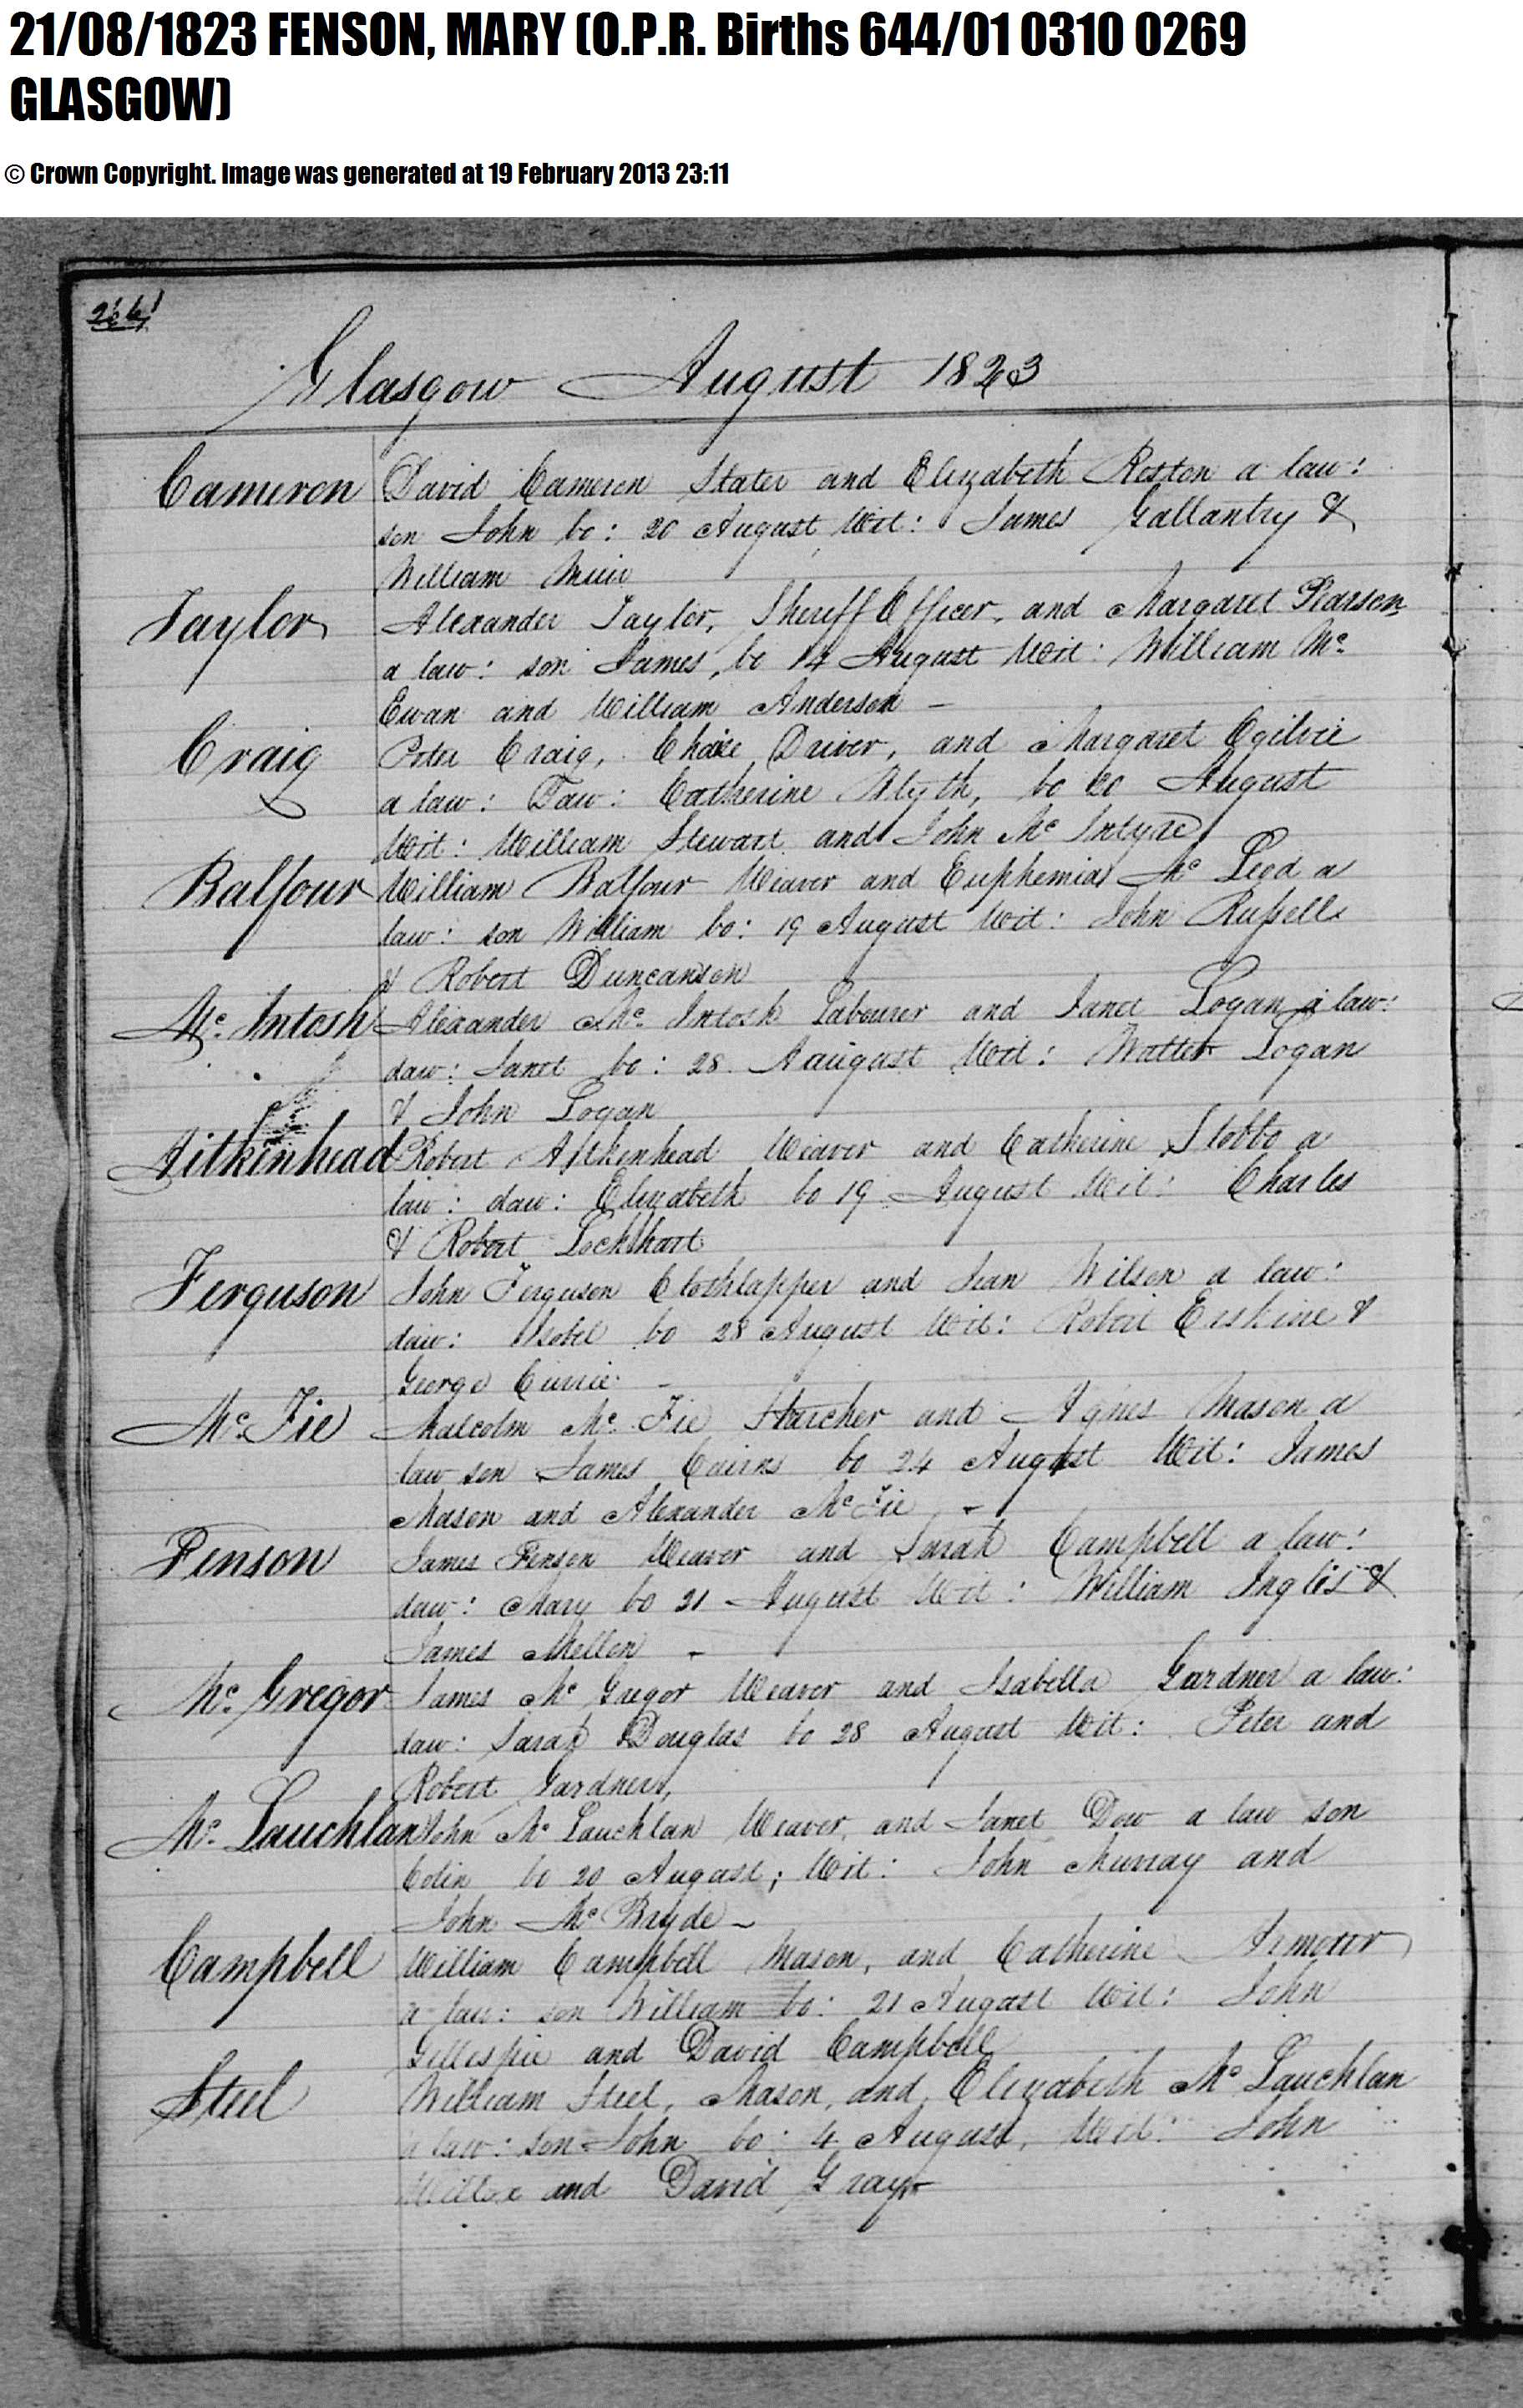 21/08/1823 FENSON, MARY (O.P.R. Births 644/01 0310 0269
GLASGOW)
© Crown Copyright. Image was generated at 19 February 2013 23:11
Glasgow August 1823
Cameron David Cameron Slater and Elizabeth Reston a law:
son John bo: 20 August Wit: James Gallantry &
William Muir
Taylor Alexander Taylor, Sheriff Officer, and Margaret Pearson
a law: son James, bo 14 August Wit: William Mc
Ewan and William Anderson –
Craig Peter Craig, Chaise Driver, and Margaret Ogilvie
a law: Daw: Catherine Blyth, bo 20 August
Wit: William Stewart and John Mc Intyre
Balfour William Balfour Weaver and Euphemia Mc Leod a
law: son William bo: 19 August Wit: John Russell
& Robert Duncanson
Mc Intosh Alexander Mc Intosh Labourer and Janet Logan a law:
daw: Janet bo: 28 August Wit: Walter Logan
& John Logan
Aitkinhead Robert Aitkenhead Weaver and Catherine Stobbo a
law: daw: Elizabeth bo 19 August Wit: Charles
& Robert Lockhart
Ferguson John Ferguson Clothlapper and Jean Wilson a law:
daw: Isobel bo 28 August Wit: Robert Erskine &
George Currie –
Mc Fie Malcolm Mc Fie Starcher and Agnes Mason a
law son James Cairns bo 24 August Wit: James
Mason and Alexander Mc Fie –
Fenson James Fenson Weaver and Sarah Campbell a law:
daw: Mary bo 21 August Wit: William Inglis &
James Mellon –
Mc Gregor James Mc Gregor Weaver and Isabella Gardner a law:
daw: Sarah Douglas bo 28 August Wit: Peter and
Robert Gardners,
Mc Lauchlan John Mc Lauchlan Weaver, and Janet Dow a law son
Colin bo 20 August; Wit: John Murray and
John Mc Bryde –
Campbell William Campbell Mason, and Catherine Armour
a law: son William bo: 21 August Wit: John
Gillespie and David Campbell
Steel William Steel, Mason, and Elizabeth Mc Lauchlan
a law: son John bo: 4 August, Wit: John
and David Gray –